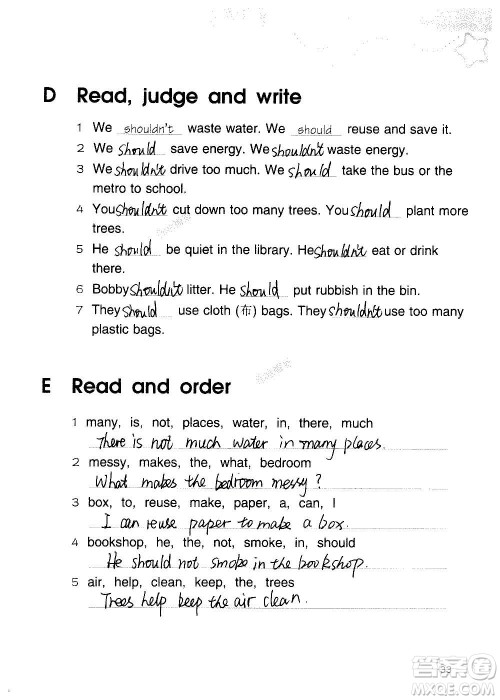 D Read, judge and write
1 We shouldn't waste water. We should reuse and save it.
2 We should save energy. We shouldn't waste energy.
3 We shouldn't drive too much. We should take the bus or the
metro to school.
4 You shouldn't cut down too many trees. You should plant more
trees.
5 He should be quiet in the library. He shouldn't eat or drink
there.
6 Bobby shouldn't litter. He should put rubbish in the bin.
7 They should use cloth (布) bags. They shouldn't use too many
plastic bags.
E Read and order
1 many, is, not, places, water, in, there, much
There is not much water in many places.
2 messy, makes, the, what, bedroom
What makes the bedroom messy?
3 box, to, reuse, make, paper, a, can, I
I can reuse paper to make a box.
4 bookshop, he, the, not, smoke, in, should
He should not smoke in the bookshop.
5 air, help, clean, keep, the, trees
Trees help keep the air clean.
33
答案圈
MXQE.COM